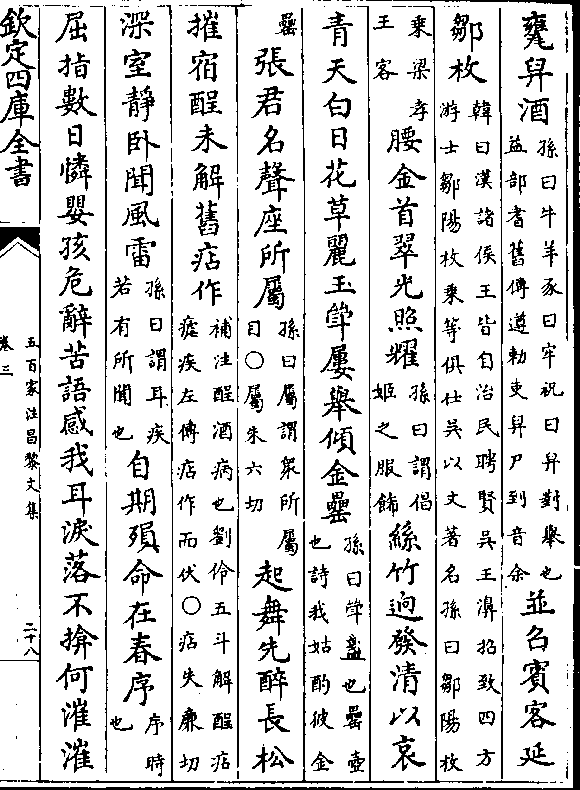 甕舁酒孫曰牛羊豕曰牢祝曰舁對舉也益部耆舊傳遵勅吏舁尸到音余並召賓客延
鄒枚韓曰漢諸侯王皆自治民聘賢吳王濞招致四方游士鄒陽枚乗等俱仕吳以文著名孫曰鄒陽枚
乗梁孝王客腰金首翠光照耀孫曰謂倡姬之服飾絲竹逈發清以哀
青天白日花草麗玉斝屢舉傾金罍孫曰斝盞也罍壺也詩我姑酌彼金
罍張君名聲座所屬孫曰屬謂衆所屬目○屬朱六切起舞先醉長松
摧宿酲未解舊痁作補注酲酒病也劉伶五斗解酲痁瘧疾左傳痁作而伏○痁失亷切
深室靜卧聞風雷孫曰謂耳疾若有所聞也自期殞命在春序序時也
屈指數日憐嬰孩危辭苦語感我耳淚落不揜何漼漼
欽定四庫全書
卷三
五百家注昌黎文集
二十八